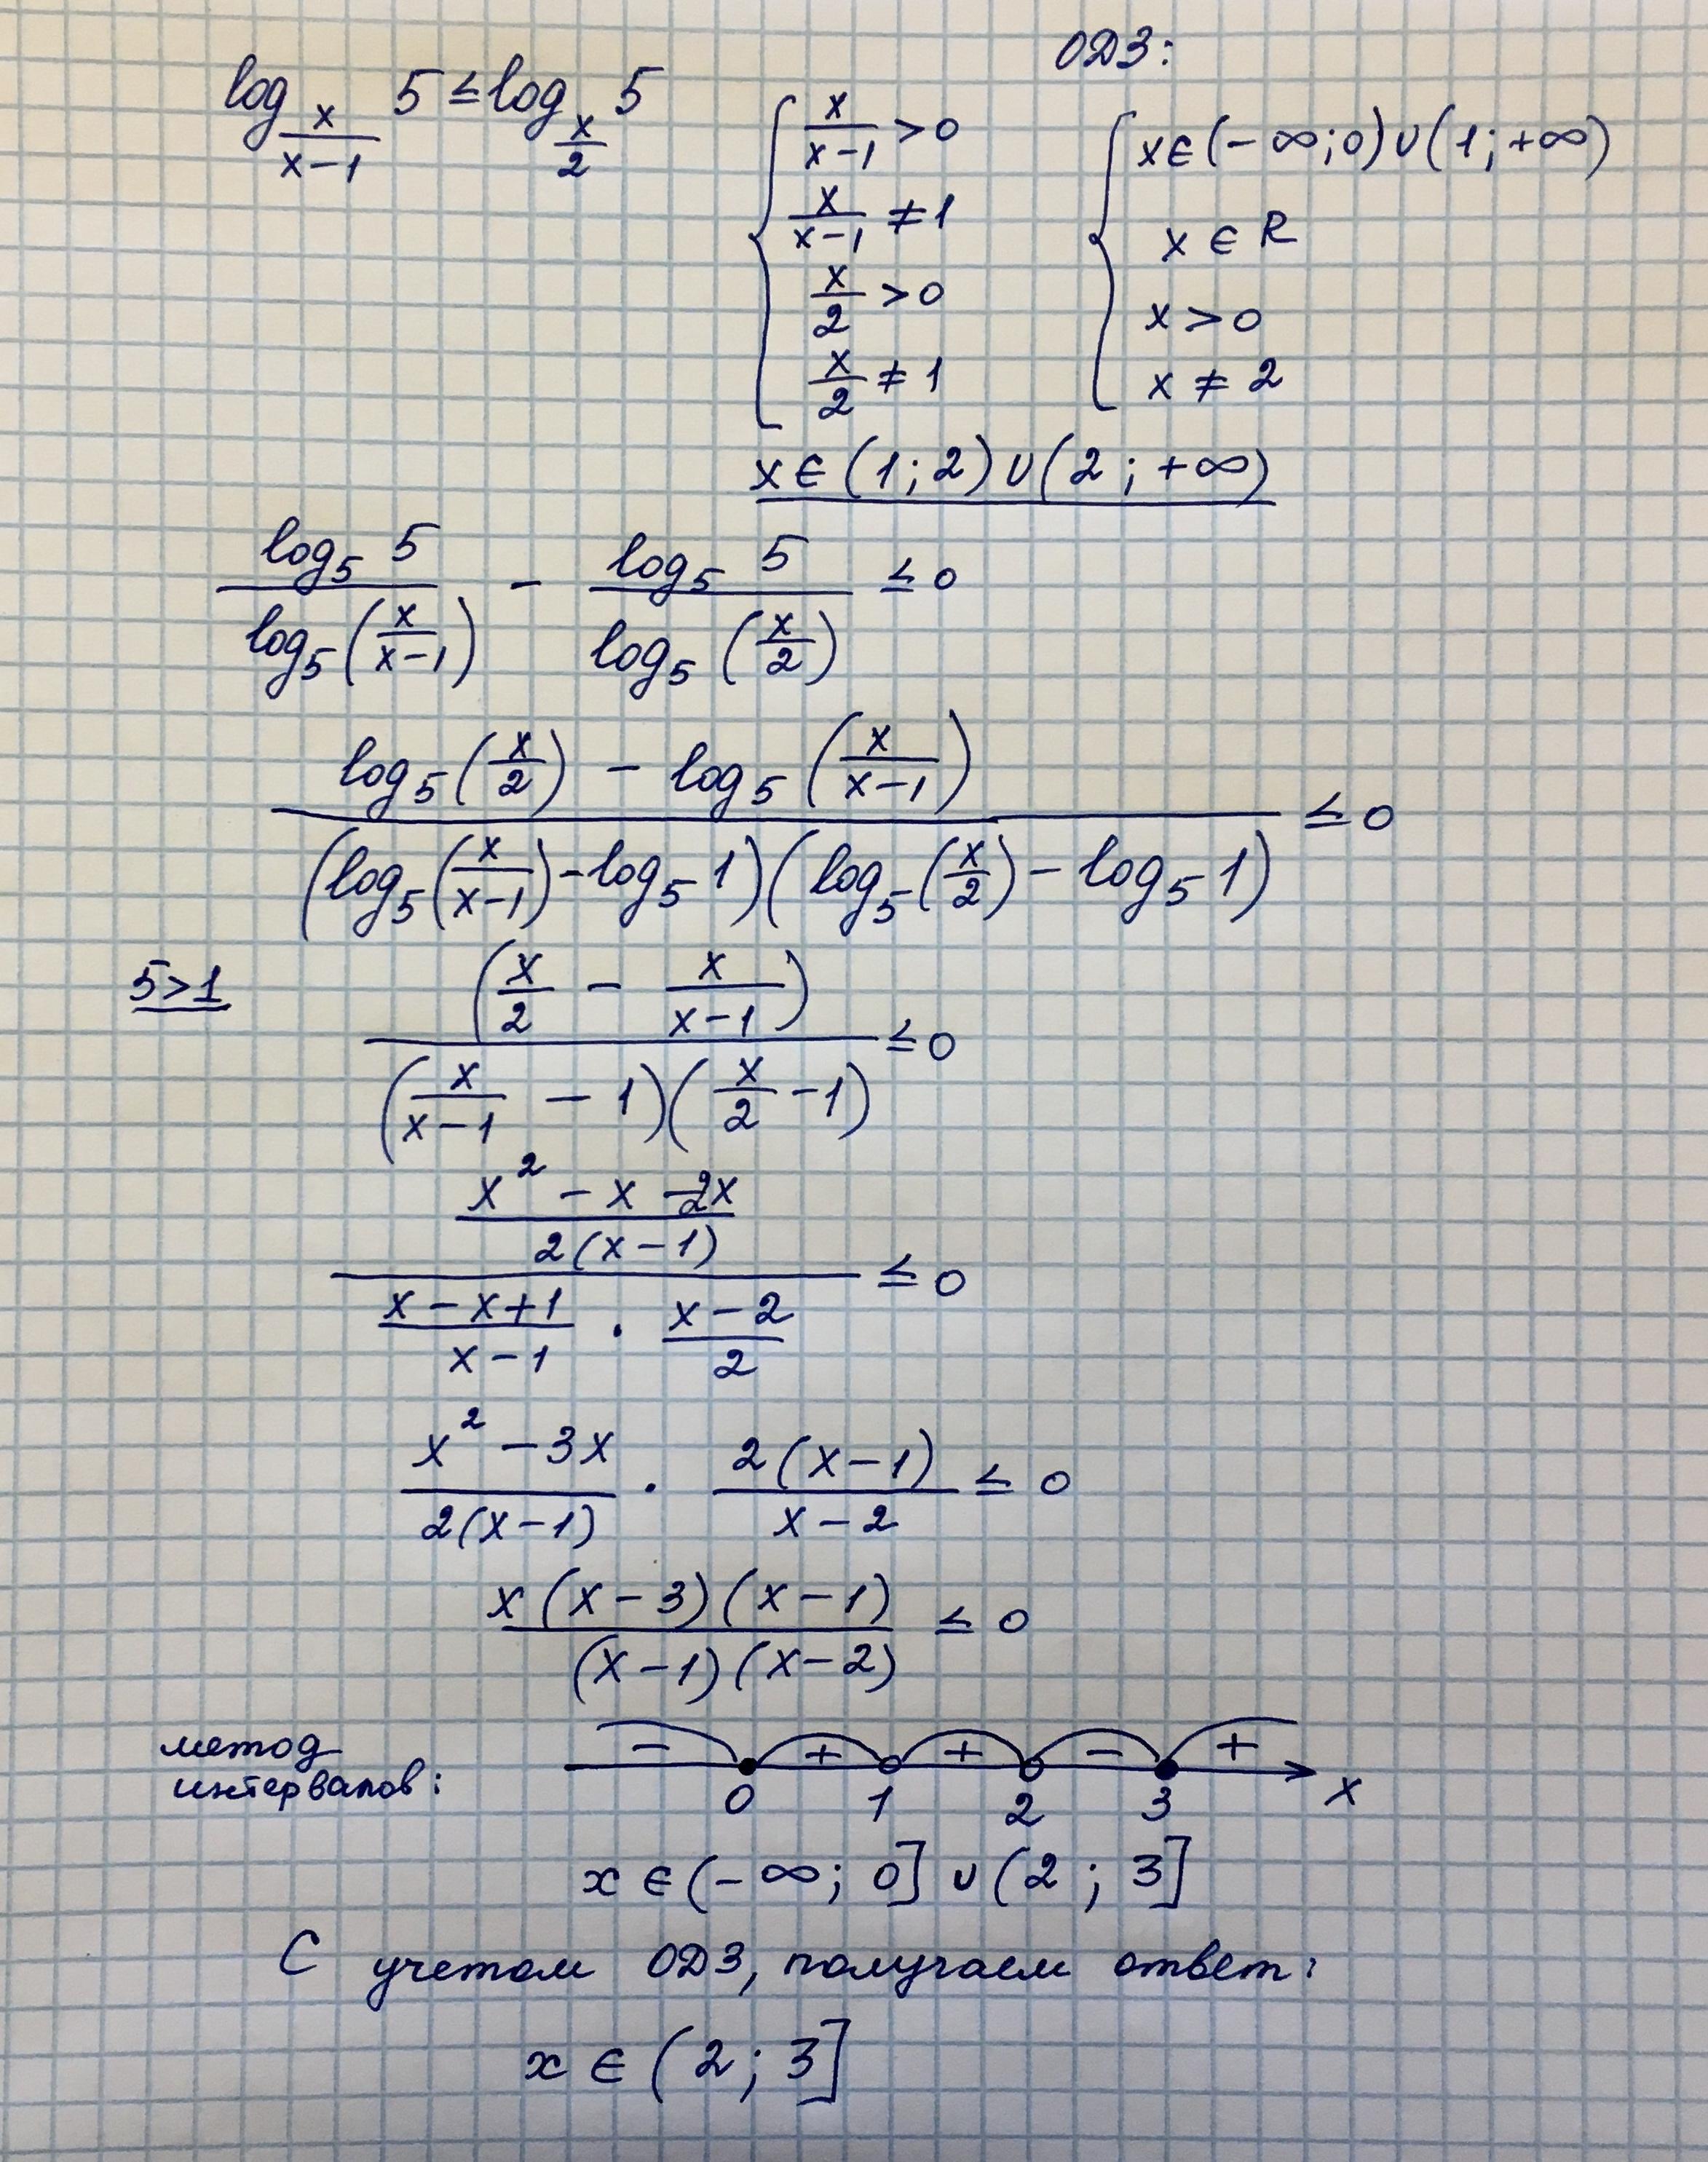 ОДЗ:
log_{x/(x-1)} 5 ≤ log_{x/2} 5
{ x/(x-1) > 0
x/(x-1) ≠ 1
x/2 > 0
x/2 ≠ 1
{ x ∈ (-∞; 0) ∪ (1; +∞)
x ∈ R
x > 0
x ≠ 2
x ∈ (1; 2) ∪ (2; +∞)
log₅ 5 / log₅(x/(x-1)) - log₅ 5 / log₅(x/2) ≤ 0
(log₅(x/2) - log₅(x/(x-1))) / ((log₅(x/(x-1)) - log₅ 1)(log₅(x/2) - log₅ 1)) ≤ 0
5 > 1
(x/2 - x/(x-1)) / ((x/(x-1) - 1)(x/2 - 1)) ≤ 0
((x² - x - 2x) / (2(x-1))) / ((x-x+1)/(x-1) · (x-2)/2) ≤ 0
(x² - 3x) / (2(x-1)) · (2(x-1)) / (x-2) ≤ 0
(x(x-3)(x-1)) / ((x-1)(x-2)) ≤ 0
метод
интервалов:
- + + - +
0 1 2 3 x
x ∈ (-∞; 0] ∪ (2; 3]
С учетом ОДЗ, получаем ответ:
x ∈ (2; 3]